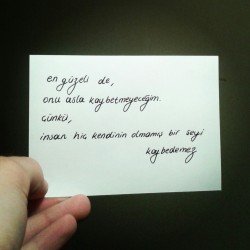 en güzeli de,
onu asla kaybetmeyeceğim.
çünkü,
insan hiç kendinin olmamış bir şeyi
kaybedemez